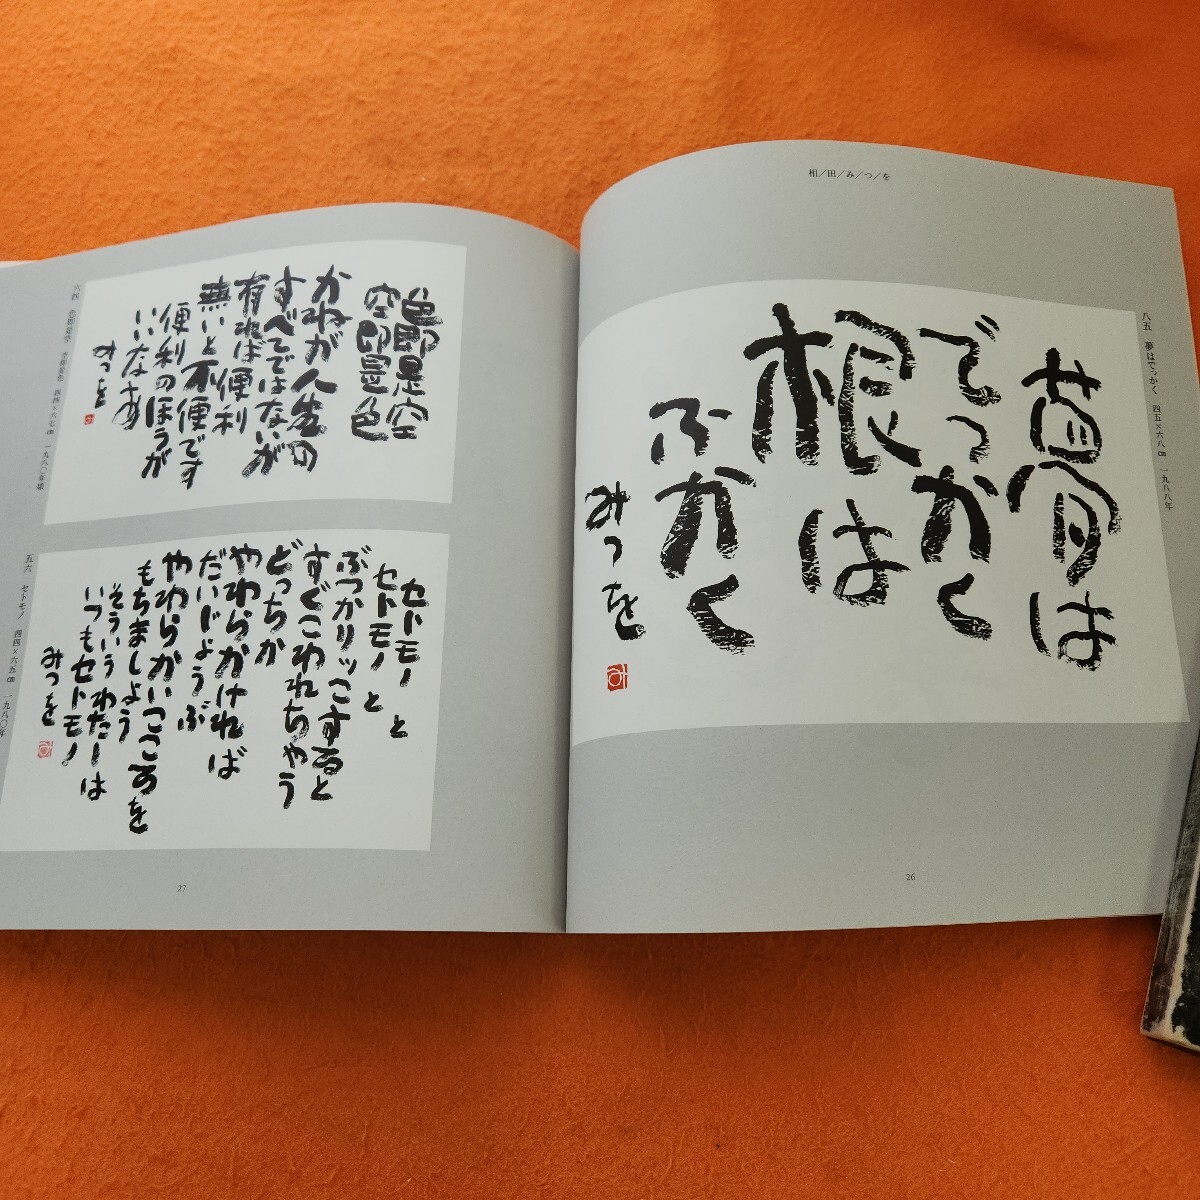 相／田／み／つ／を
八五　夢はでっかく　四五×六八㎝　一九八八年
夢は
でっかく
根は
ふかく
みつを
26
色即是空
空即是色
かねが人生の
すべてではないが
有れば便利
無いと不便です
便利のほうが
いいなあ
みつを
六四　色即是空　空即是色　四四×六七㎝　一九八〇年頃
セトモノと
セトモノと
ぶつかりッこすると
すぐこわれちゃう
どっちか
やわらかければ
だいじょうぶ
やわらかいこころを
もちましょう
そういうわたしは
いつもセトモノ
みつを
五六　セトモノ　四四×六五㎝　一九八〇年
27